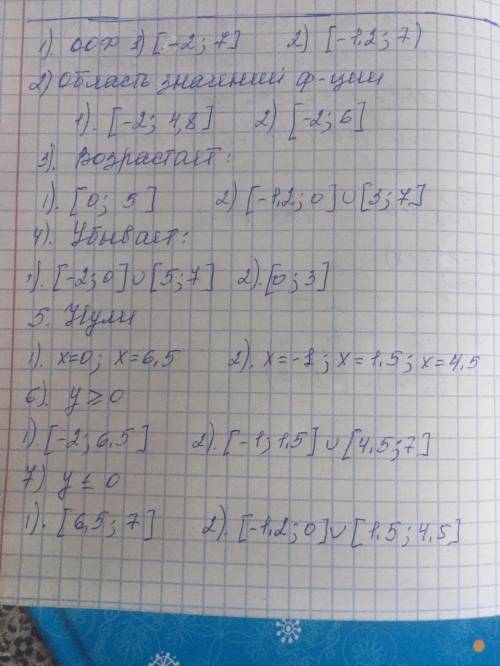 1). ООФ 1) [-2; 7] 2) [-1,2; 7)
2) Область значений ф-ции
1). [-2; 4,8] 2) [-2; 6]
3). Возрастает:
1). [0; 5] 2) [-1,2; 0] ∪ [3; 7]
4). Убывает:
1). [-2; 0] ∪ [5; 7] 2). [0; 3]
5. Нули
1). x=0; x=6,5 2). x=-1; x=1,5; x=4,5
6). y ≥ 0
1). [-2; 6,5] 2). [-1; 1,5] ∪ [4,5; 7]
7) y ≤ 0
1). [6,5; 7] 2). [-1,2; 0] ∪ [1,5; 4,5]